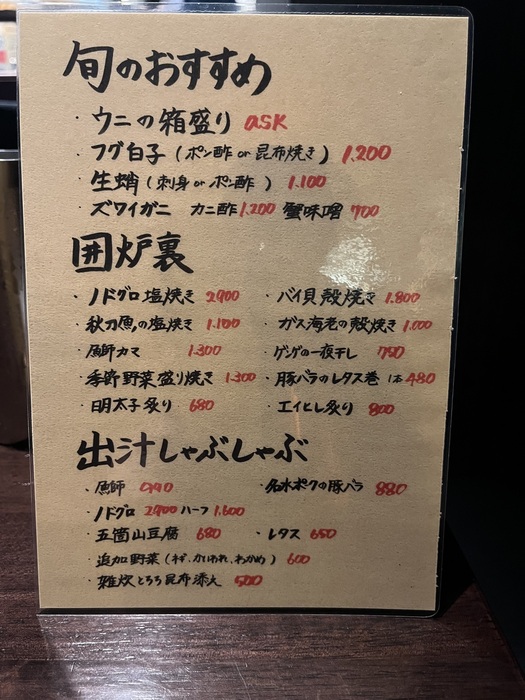 旬のおすすめ
・ウニの箱盛り ask
・フグ白子（ポン酢 or 昆布焼き） 1.200
・生蛸（刺身 or ポン酢） 1.100
・ズワイガニ カニ酢 1.200 蟹味噌 700
囲炉裏
・ノドグロ塩焼き 2900
・バイ貝 殻焼き 1.800
・秋刀魚の塩焼き 1.100
・ガス海老の殻焼き 1.000
・魚師カマ 1.300
・ゲンゲの一夜干し 750
・季節野菜盛り焼き 1.300
・豚バラのレタス巻 1本 480
・明太子炙り 680
・エイヒレ炙り 800
出汁しゃぶしゃぶ
・魚師 990
・名水ポークの豚バラ 880
・ノドグロ 2900 ハーフ 1.600
・五箇山豆腐 680
・レタス 650
・追加野菜（ネギ、かいわれ、わかめ） 600
・雑炊 とろろ昆布添え 500